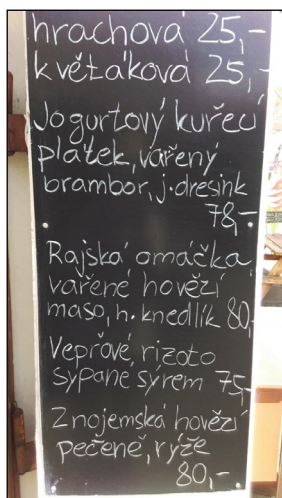 hrachová 25,-
květáková 25,-
Jogurtový kuřecí
plátek, vařený
brambor, j. dresink
78,-
Rajská omáčka
vařené hovězí
maso, h. knedlík 80,-
Vepřové rizoto
sypané sýrem 75,-
Znojemská hovězí
pečeně, rýže
80,-